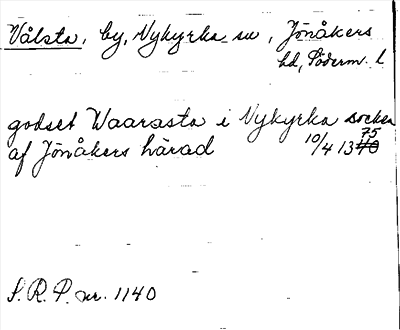 Vålsta, by, Nykyrka sn, Jönåkers
hd, Söderm. l
godset Waarasta i Nykyrka socken
af Jönåkers härad 10/4 1375
S. R. P. nr. 1140